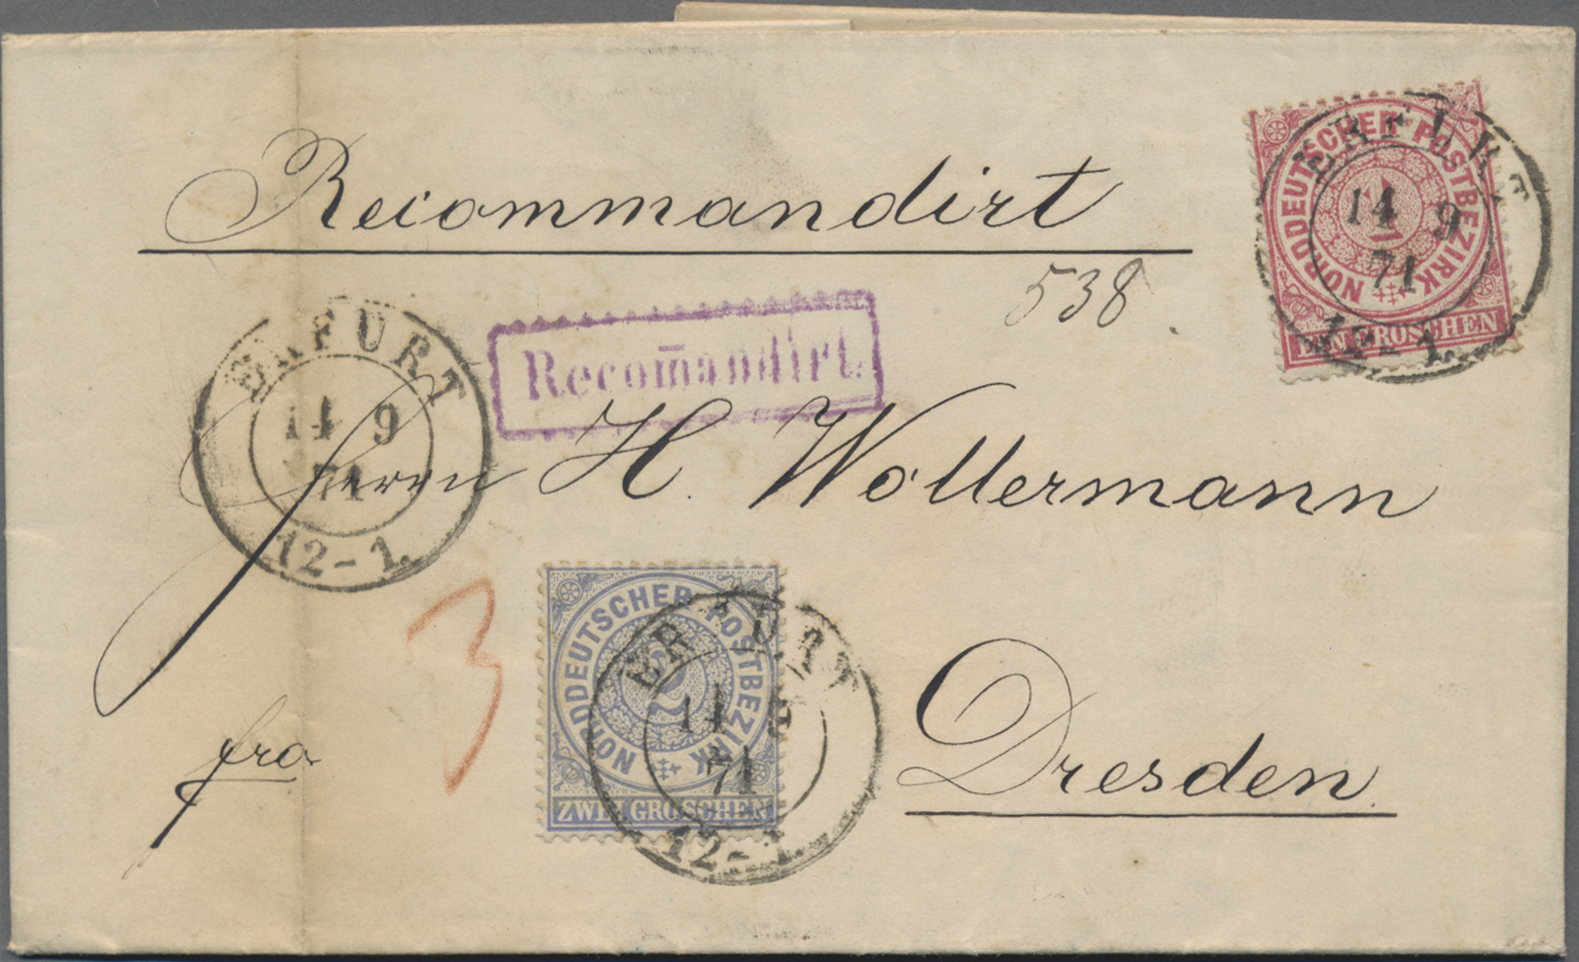 Recommandirt
NORDDEUTSCHER POSTBEZIRK
1
EIN GROSCHEN
ERFURT
14 9
71
12-1.
538.
Recom̅andirt.
ERFURT
14 9
71
12-1.
Herrn H. Wollermann
3
NORDDEUTSCHER POSTBEZIRK
2
ZWEI GROSCHEN
ERFURT
14 9
71
12-1.
fro
Dresden.